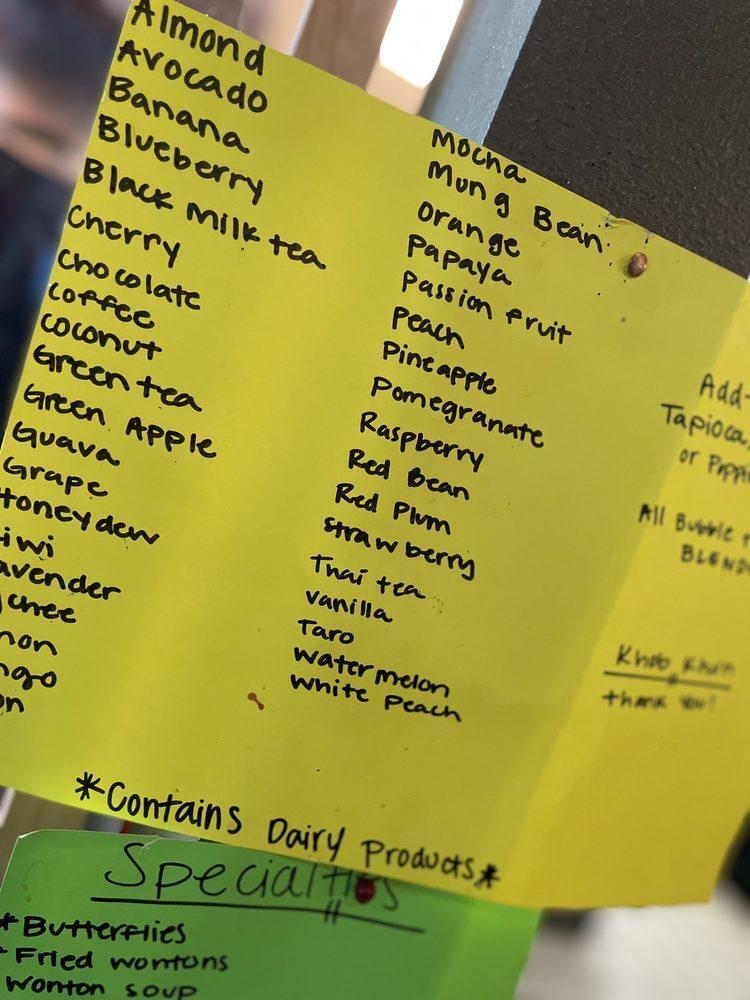 Almond
Avocado
Banana
Blueberry
Black Milk tea
Cherry
Chocolate
Coffee
Coconut
Green tea
Green Apple
Guava
Grape
Honeydew
iwi
avender
chee
mon
ngo
on
Mocha
Mung Bean
Orange
Papaya
Passion fruit
Peach
Pineapple
Pomegranate
Raspberry
Red Bean
Red Plum
Strawberry
Thai tea
Vanilla
Taro
Watermelon
White Peach
Add-
Tapioca,
or Poppi
All Bubble t
BLEND
Khob Khun
thank You!
*Contains Dairy Products*
Specialties
*Butterflies
*Fried wontons
wonton soup